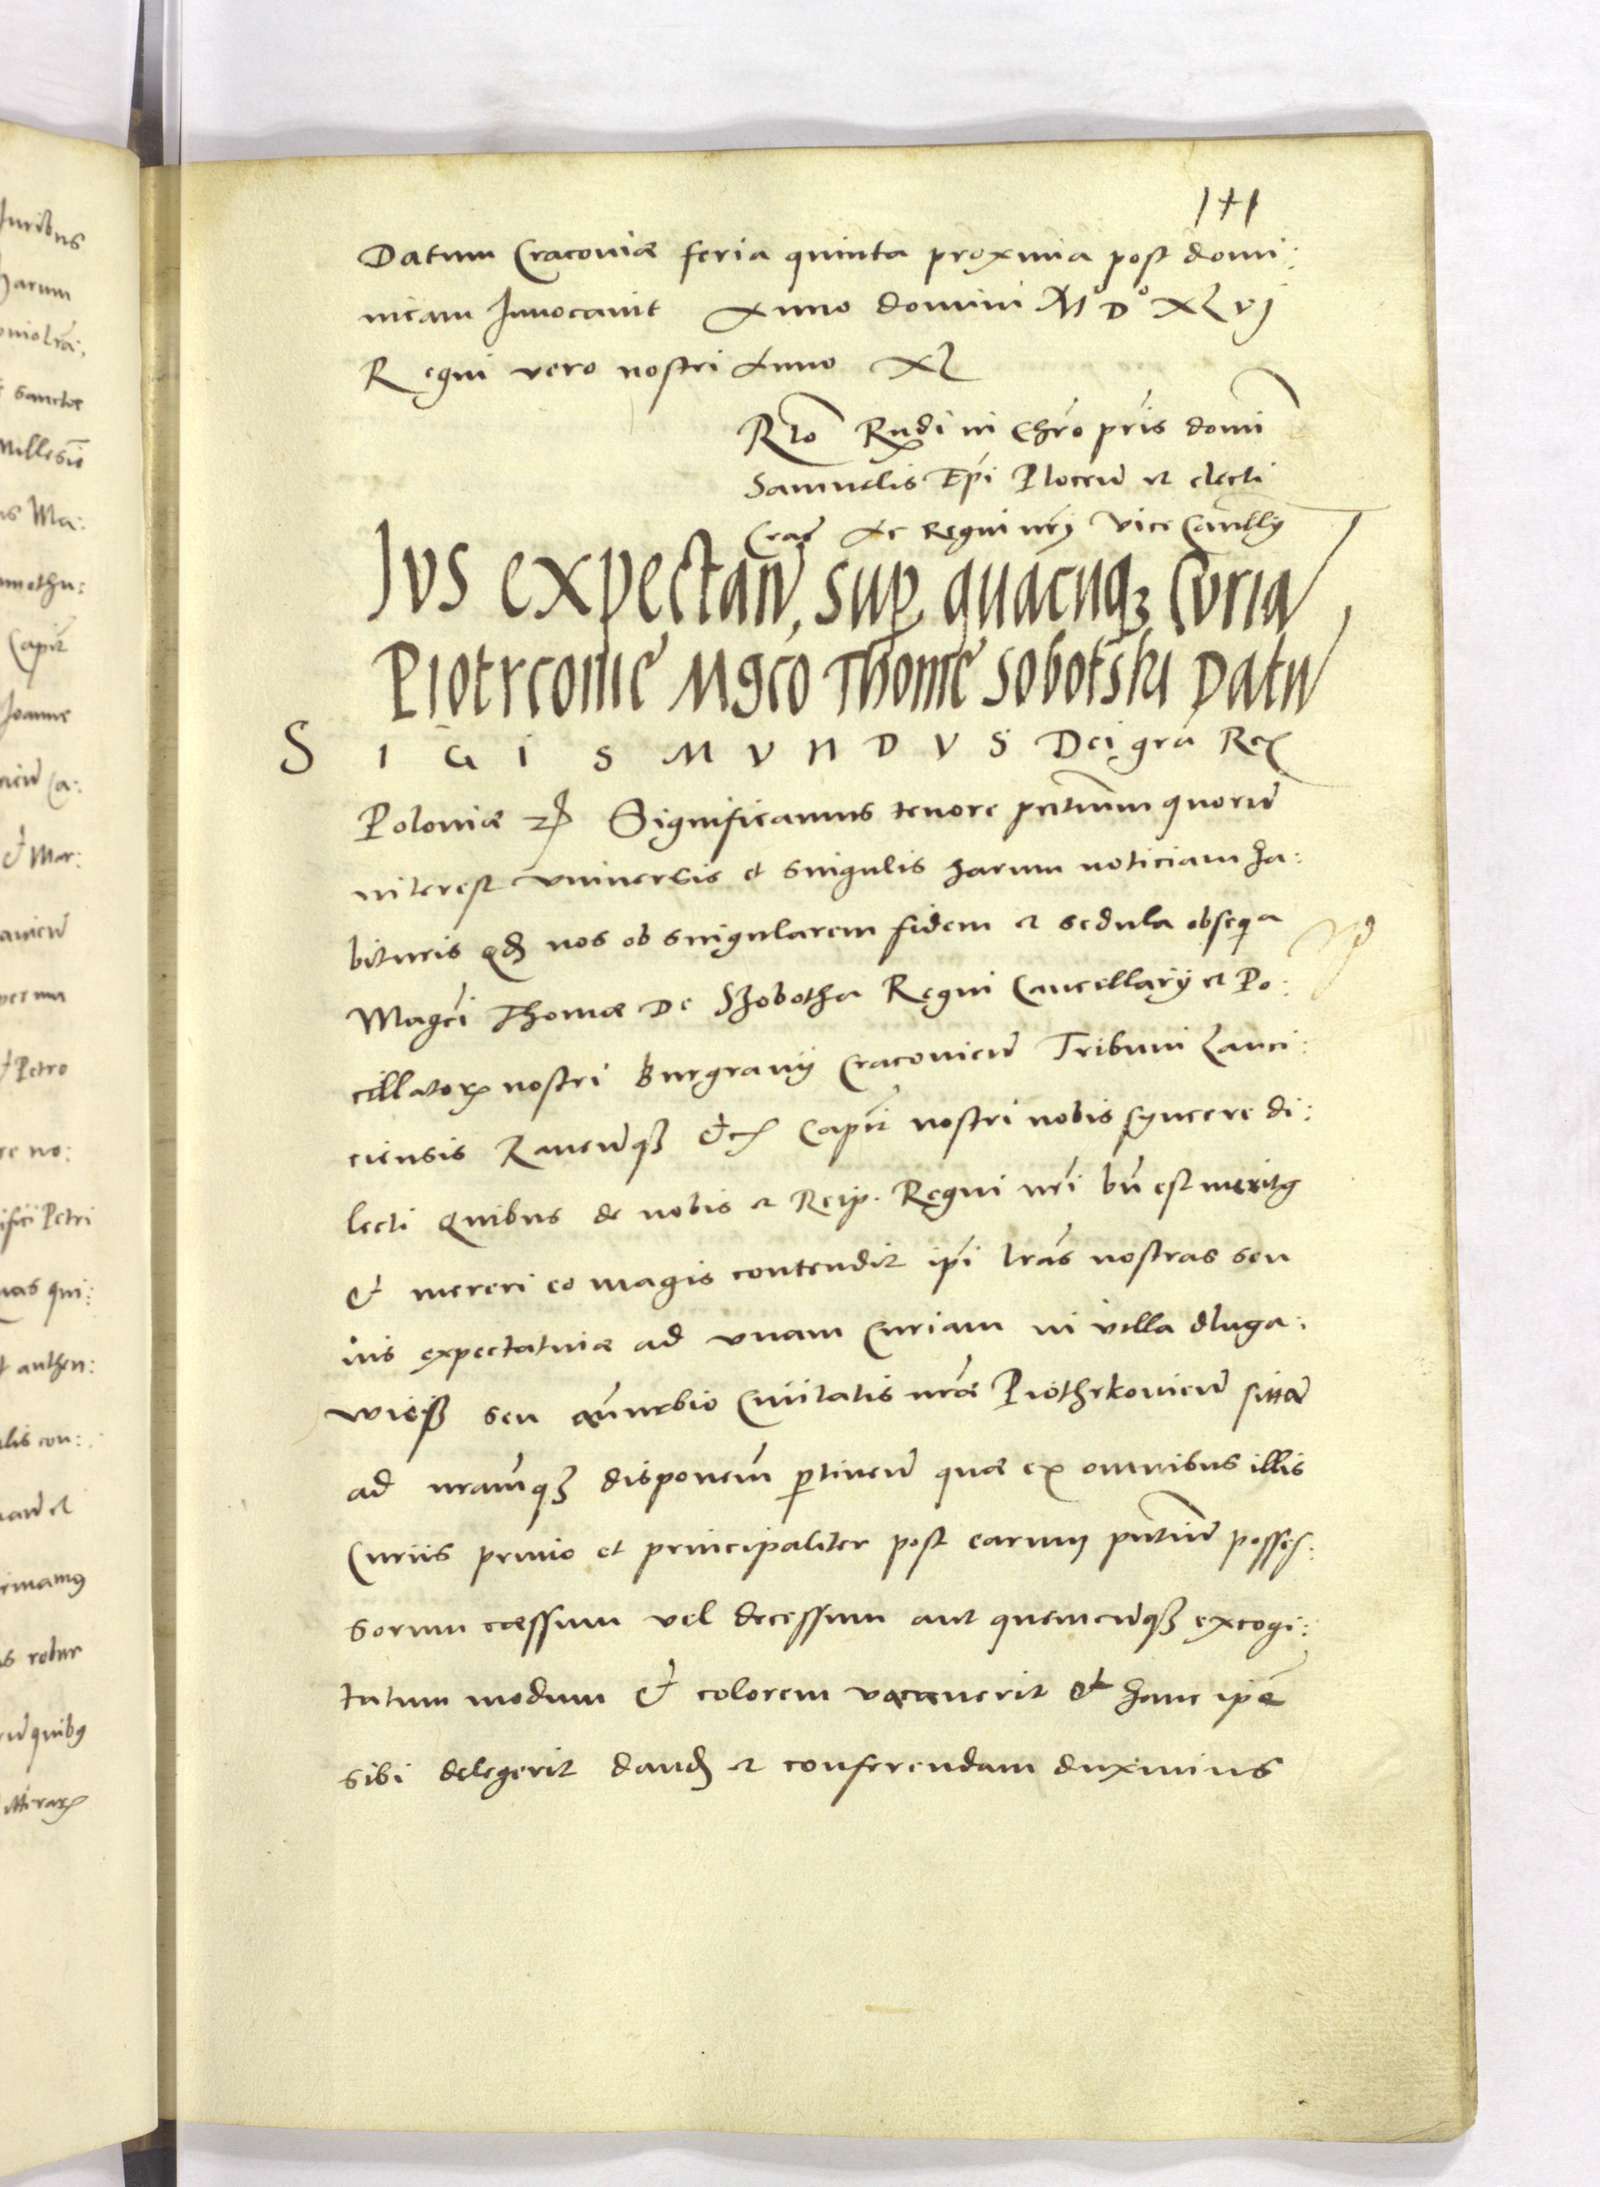 141
Datum Cracoviæ feria quinta proxima post domi:
nicam Invocavit Anno domini M° D° XLvj
Regni vero nostri Anno XL
Rlo Rndi in Chro pris domi
Samuelis Epi Plocen et electi
Crac Ac Regni nri Vice Cancellarij
Jus expectan, sup quacuqz Curia
Piotrcovie Mgco Thome Sobotski Datu
SIGISMVNDVS Dei gra Rex
Poloniæ etc Significamus tenore pntium quorum
interest vniversis et singulis harum noticiam ha:
bituris qd nos ob singularem fidem et sedula obsequia
Magci Thomæ De Szobotha Regni Cancellarij et Po:
cillatorx nostri Burgravij Cracovien Tribuni Lanci:
ciensis Ravenqz &c Capit nostri nobis syncere di:
lecti Quibus de nobis et Reip. Regni nri bn est meritg
& mereri eo magis contendit ipi lras nostras seu
ius expectativæ ad vnam Curiam in villa dluga:
wiess seu suburbio Civitatis nræ Piothrkovien sittam
ad nramqz disponem ptinen quæ ex omnibus illis
Curiis primo et principaliter post earum pntium posses:
sorum cessum vel decessum aut quemcunqz excogi:
tatum modum & colorem vacaverit & hanc ipe
sibi delegerit dand et conferendam duximus